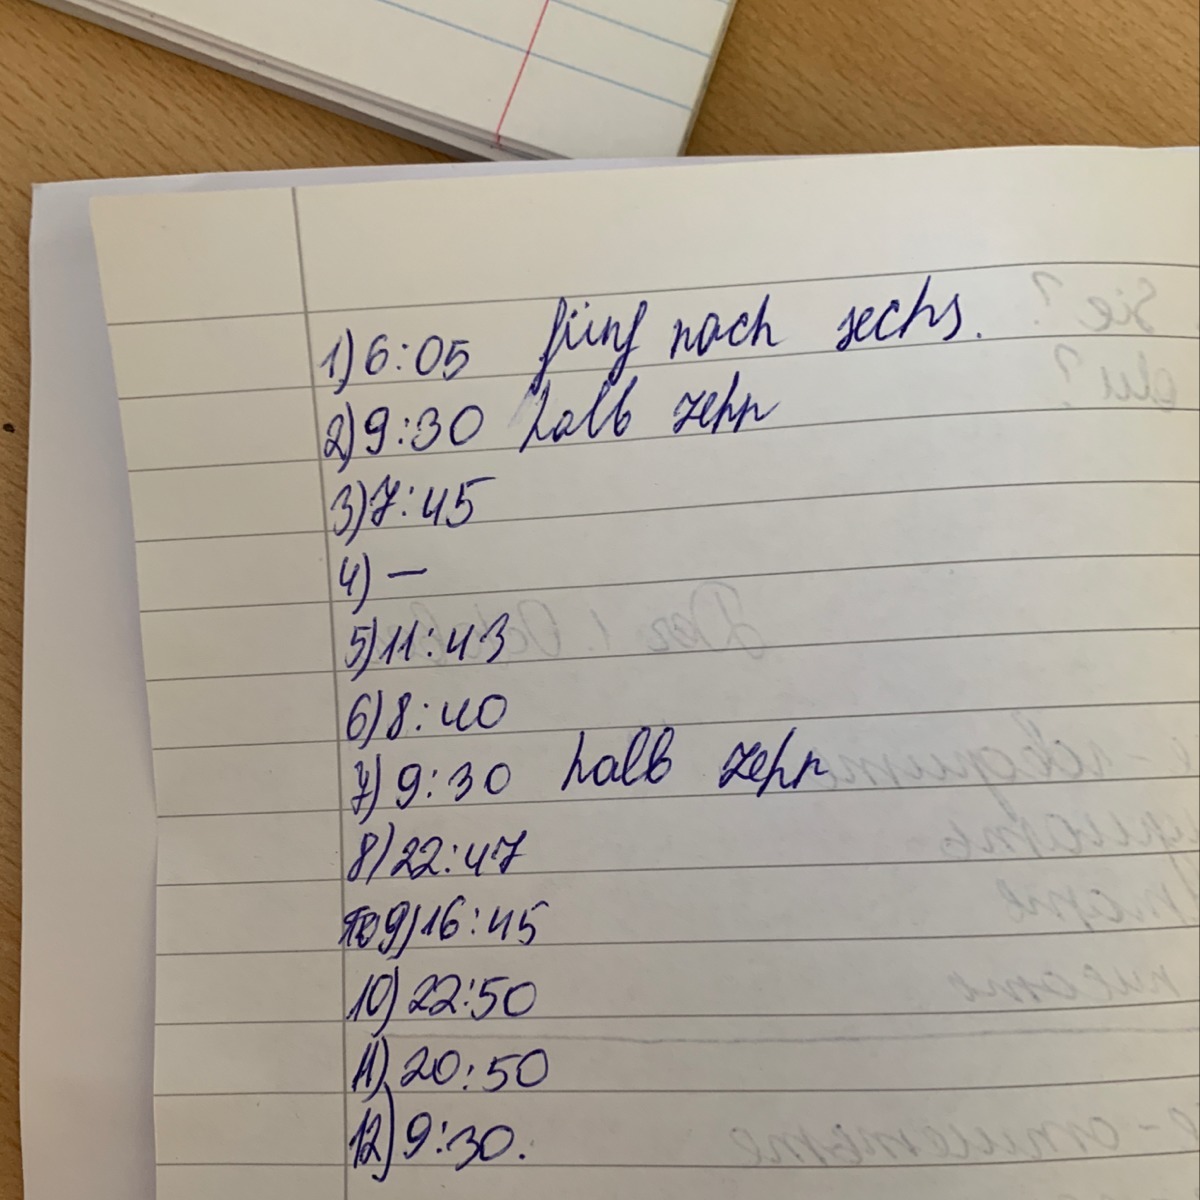 1) 6:05 fünf nach sechs.
2) 9:30 halb zehn
3) 7:45
4) —
5) 11:43
6) 8:40
7) 9:30 halb zehn
8) 22:47
9) 16:45
10) 22:50
11) 20:50
12) 9:30.